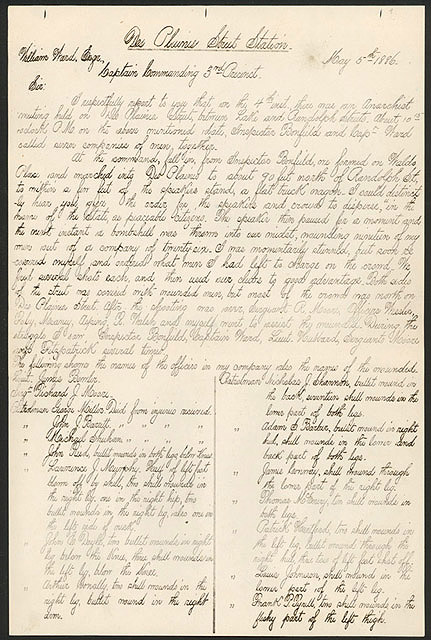 Des Plaines Street Station.
May 5th 1886.
William Ward, Esqr.,
Captain Commanding 3rd Precinct.
Sir:
I respectfully report to you that on the 4th inst, there was an Anarchist
meeting held on Des Plaines Street, between Lake and Randolph streets. About 10
o'clock P.M. on the above mentioned date, Inspector Bonfield and Capt Ward
called seven companies of men, together.
At the command, fall in, from Inspector Bonfield, we formed on Waldo
Place and marched into Des Plaines to about 90 feet north of Randolph St.,
to within a few feet of the speakers stand, a flat truck wagon. I could distinct-
ly hear you give the order for the speakers and crowd to disperse, "in the
name of the State, as peaceable citizens. The speaker then paused for a moment and
the next instant a bombshell was thrown into our midst, wounding nineteen of my
men out of a company of twenty-six. I was momentarily stunned, but soon re-
covered myself and ordered what men I had left to charge on the crowd. We
fired several shots each, and then used our clubs to good advantage. Both sides
of the street was covered with wounded men, but most of the crowd was north on
Des Plaines Street. After the shooting was over, Sergeant R. Moore, Officers
R. Walsh and myself went to assist the wounded. During the
struggle I saw Inspector Bonfield, Captain Ward, Lieut. Hubbard, Sergeants Moore
and Fitzpatrick several times.
The following shows the names of the officers in my company also the names of the wounded.
Lieut. James Bowler.
Sergt Richard J. Moore.
Patrolman George Miller Died from injuries received
" John J. Barrett, " " " "
" Michael Sheehan " " " "
" John Reed, bullet wounds in both legs below knee
" Lawrence J. Murphy, Half of left foot
blown off by shell, two shell wounds in
the right leg, one in the right hip, two
bullet wounds in the right leg, also one on
the left side of neck.
" John E. Doyle, two bullet wounds in right
leg below the knee, three shell wounds in
the left leg, below the knee.
" Arthur Conolly, two shell wounds in the
right leg, bullet wound in the right
arm.
Patrolman Nicholas J. Shannon, bullet wound in
the back, seventeen shell wounds in the
lower part of both legs.
" Adam S. Barber, bullet wound in right
heel, shell wounds in the lower and
back part of both legs.
" James Conway, shell wound through
the lower part of the right leg.
" Thomas McEnery, ten shell wounds in
both legs.
" Patrick Hartford, two shell wounds in
the left leg, bullet wound through the
right heel, two toes of left foot shot off.
" Louis Johnson, shell wound in the
lower part of the left leg.
" Frank P. Tyrell, two shell wounds in the
fleshy part of the left thigh.